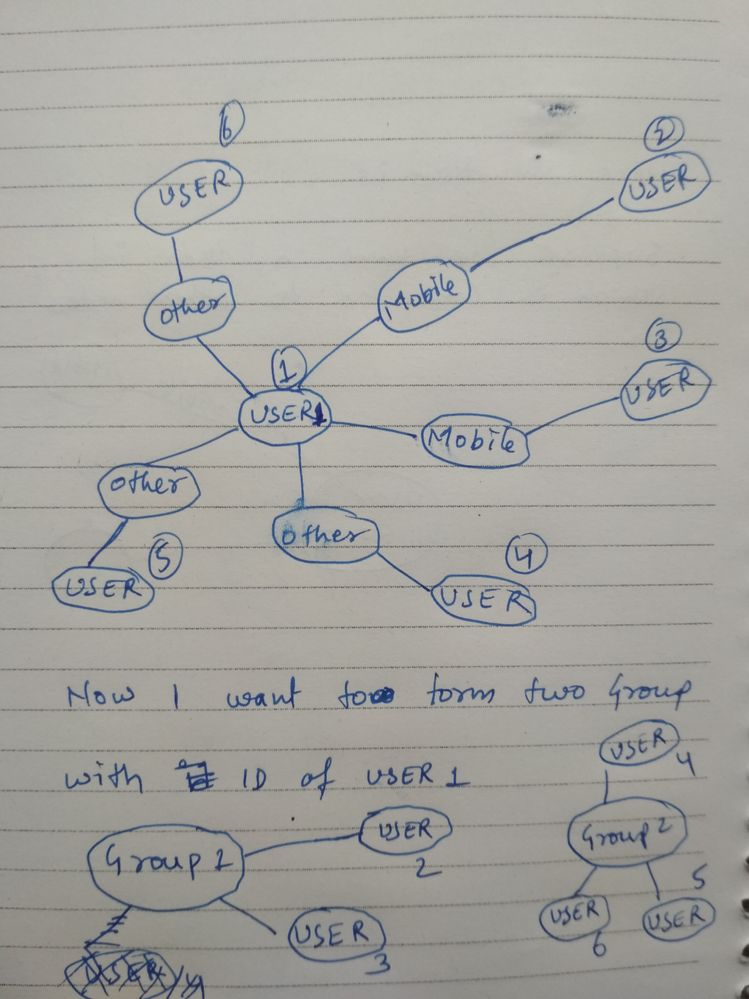 6
2
USER
USER
Other
Mobile
3
1
USER
USER1
Mobile
Other
Other
5
4
USER
USER
Now I want to form two Group
with ID of USER 1
USER
4
USER
Group 2
Group 1
2
5
USER
USER
USER
6
3
USER
4